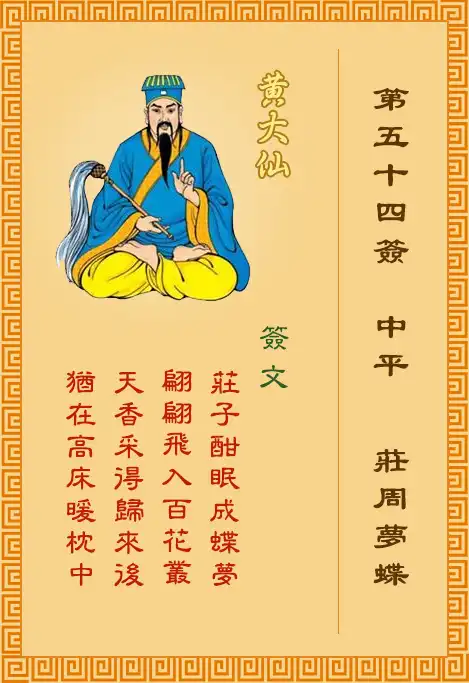 第五十四簽 中平 莊周夢蝶
黄大仙
簽文
莊子酣眠成蝶夢
翩翩飛入百花叢
天香采得歸來後
猶在高床暖枕中